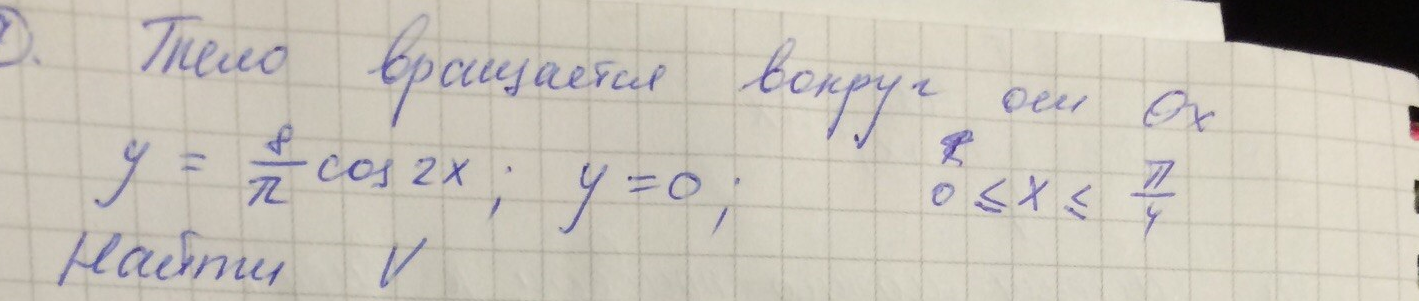 Тело вращается вокруг оси Ox
y = 8/π cos 2x ; y = 0 ; 0 ≤ x ≤ π/4
Найти V